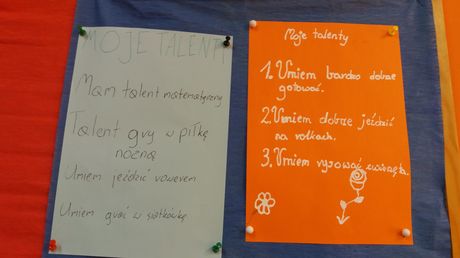 MOJE TALENTY
Mam talent matematyczny
Talent gry w piłkę
nożną
Umiem jeździć rowerem
Umiem grać w siatkówkę
Moje talenty
1. Umiem bardzo dobrze
gotować.
2. Umiem dobrze jeździć
na rolkach.
3. Umiem rysować zwierzęta.